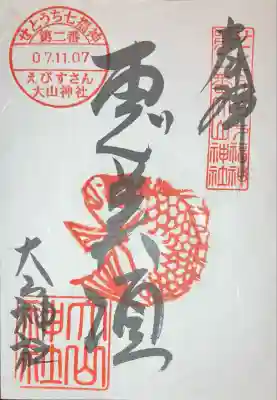 奉拝
恵美須
大山神社
せとうち七福神
第二番
07.11.07
えびすさん
大山神社
大山神社